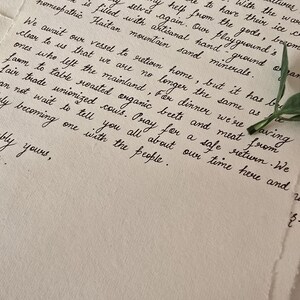 help from the gods, a
selves again. Our playground's
is filled with artisanal hand-ground, organic
homeopathic Haitan mountain sand minerals.
We await our vessel to return home, but it has be
clear to us that we are no longer the same as the
ones who left the mainland. For dinner we're having
farm to table roasted organic beets and meat from
fair trade unionized cows. Pray for a safe return. We
can not wait to tell you all about our time here and
becoming one with the people.
yours,